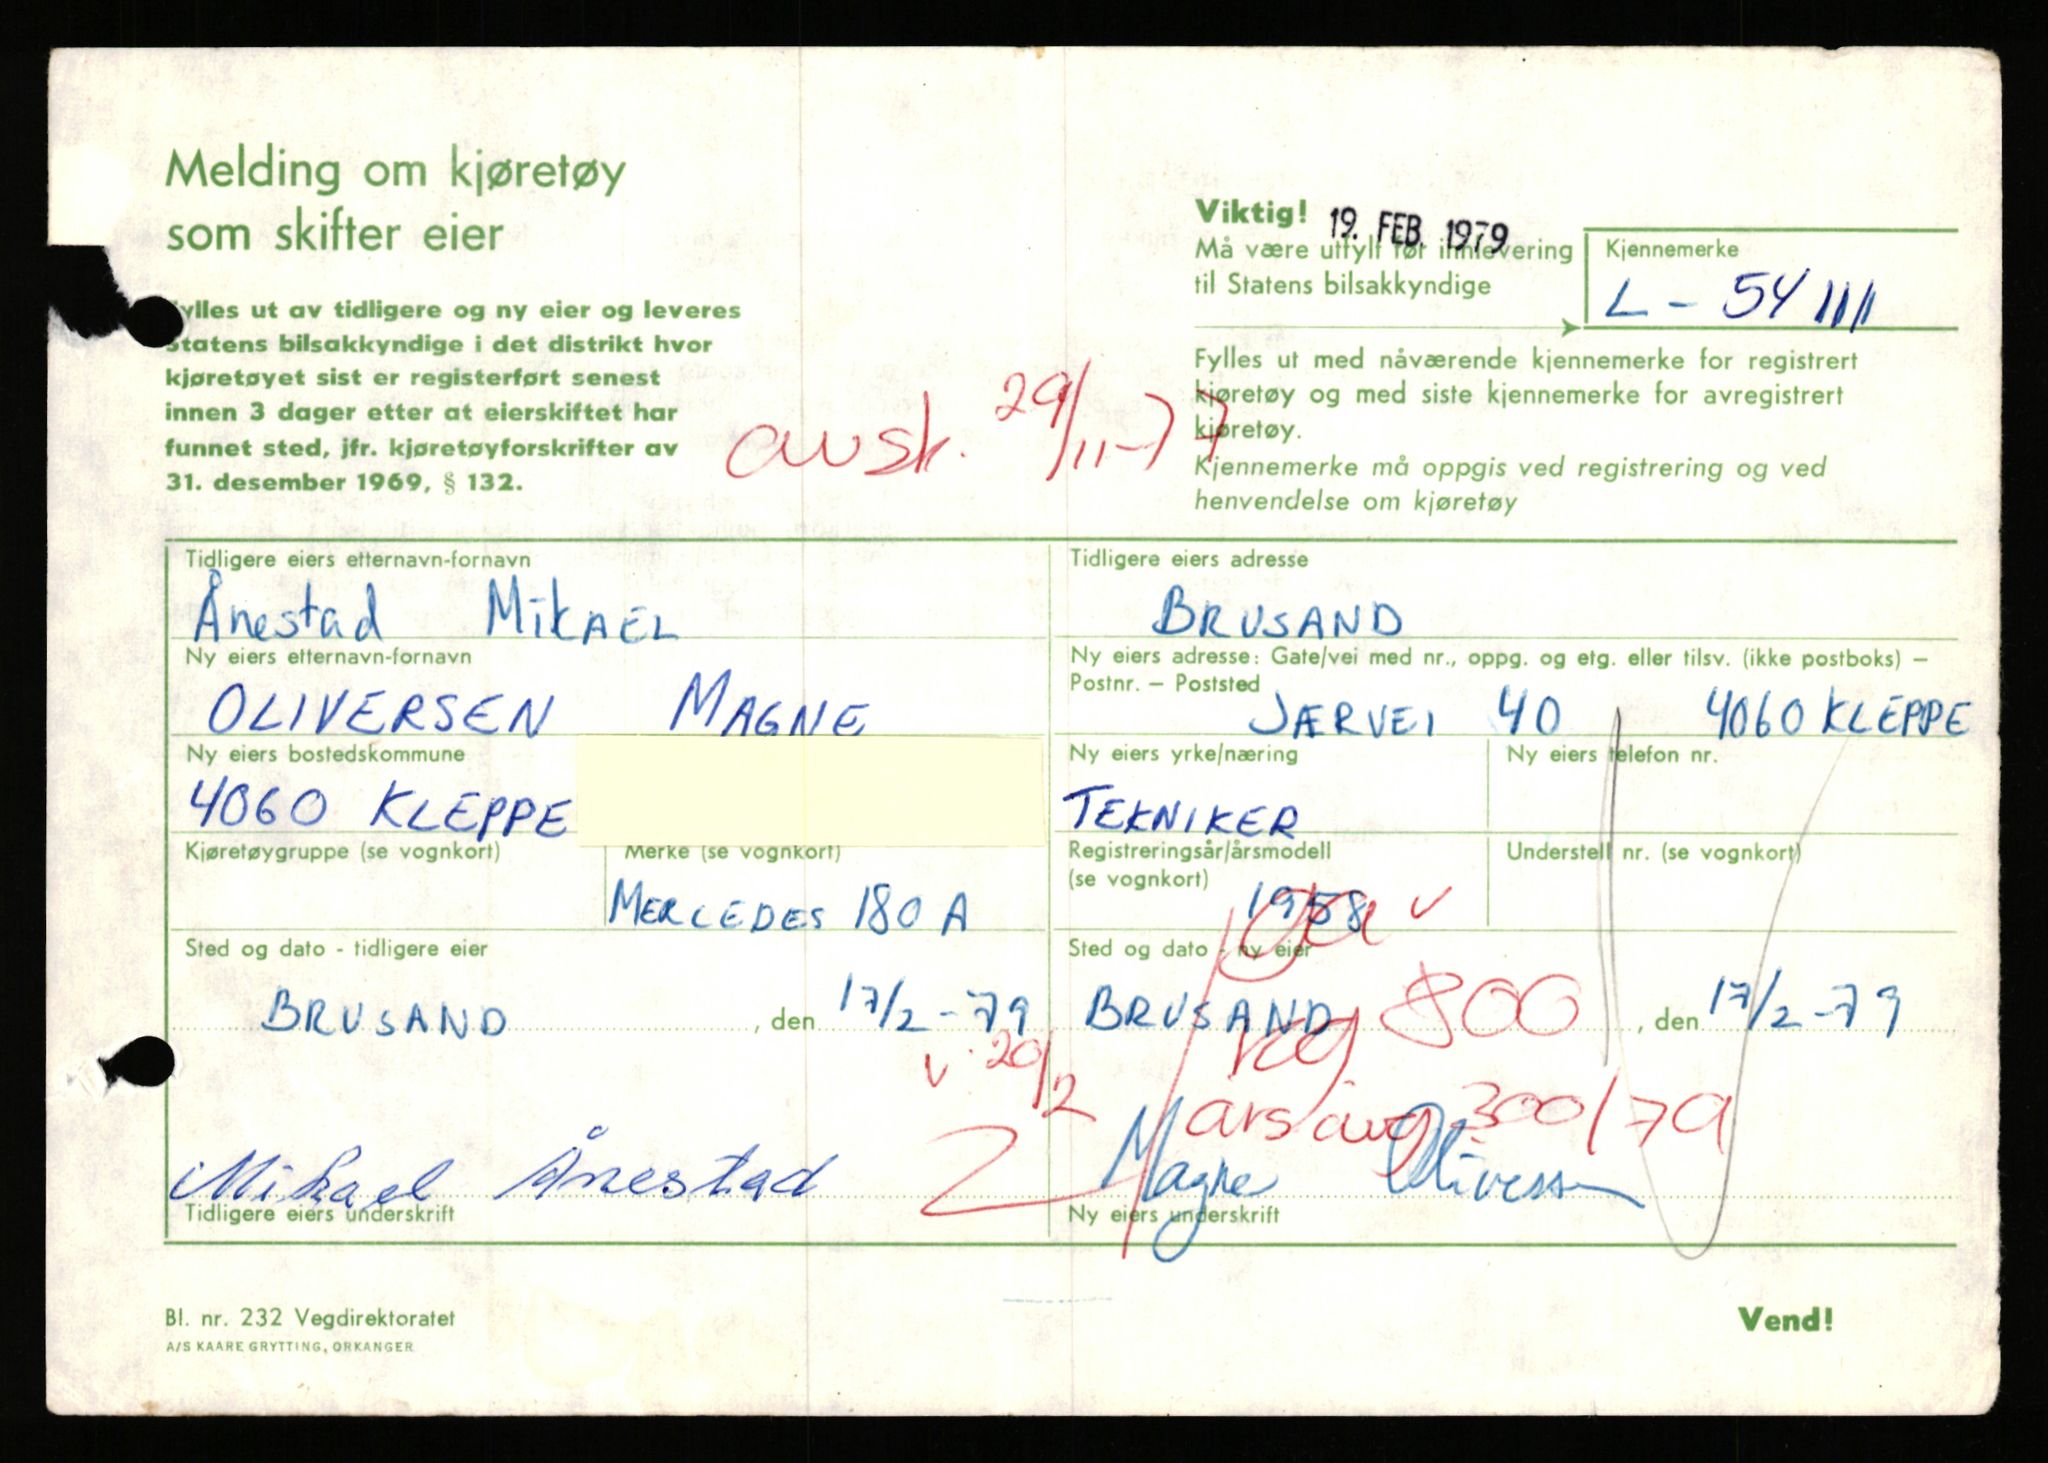 Melding om kjøretøy
som skifter eier
Fylles ut av tidligere og ny eier og leveres
Statens bilsakkyndige i det distrikt hvor
kjøretøyet sist er registerført senest
innen 3 dager etter at eierskiftet har
funnet sted, jfr. kjøretøyforskrifter av
31. desember 1969, § 132.
avsk. 29/11-77
Viktig! 19. FEB. 1979
Må være utfylt før innlevering
til Statens bilsakkyndige
Kjennemerke
L - 54111
Fylles ut med nåværende kjennemerke for registrert
kjøretøy og med siste kjennemerke for avregistrert
kjøretøy.
Kjennemerke må oppgis ved registrering og ved
henvendelse om kjøretøy
Tidligere eiers etternavn-fornavn
Ånestad Mikael
Tidligere eiers adresse
BRUSAND
Ny eiers etternavn-fornavn
OLIVERSEN MAGNE
Ny eiers adresse: Gate/vei med nr., oppg. og etg. eller tilsv. (ikke postboks) –
Postnr. – Poststed
JÆRVEI 40 4060 KLEPPE
Ny eiers bostedskommune
4060 KLEPPE
Ny eiers yrke/næring
TEKNIKER
Ny eiers telefon nr.
Kjøretøygruppe (se vognkort)
Merke (se vognkort)
MERCEDES 180 A
Registreringsår/årsmodell
(se vognkort)
1958
Understell nr. (se vognkort)
Sted og dato - tidligere eier
BRUSAND, den 17/2-79
Sted og dato - ny eier
BRUSAND, den 17/2-79
v. 20/2
reg 800
årsavg 300/79
Mikael Ånestad
Tidligere eiers underskrift
Magne Oliversen
Ny eiers underskrift
Bl. nr. 232 Vegdirektoratet
A/S KAARE GRYTTING, ORKANGER
Vend!